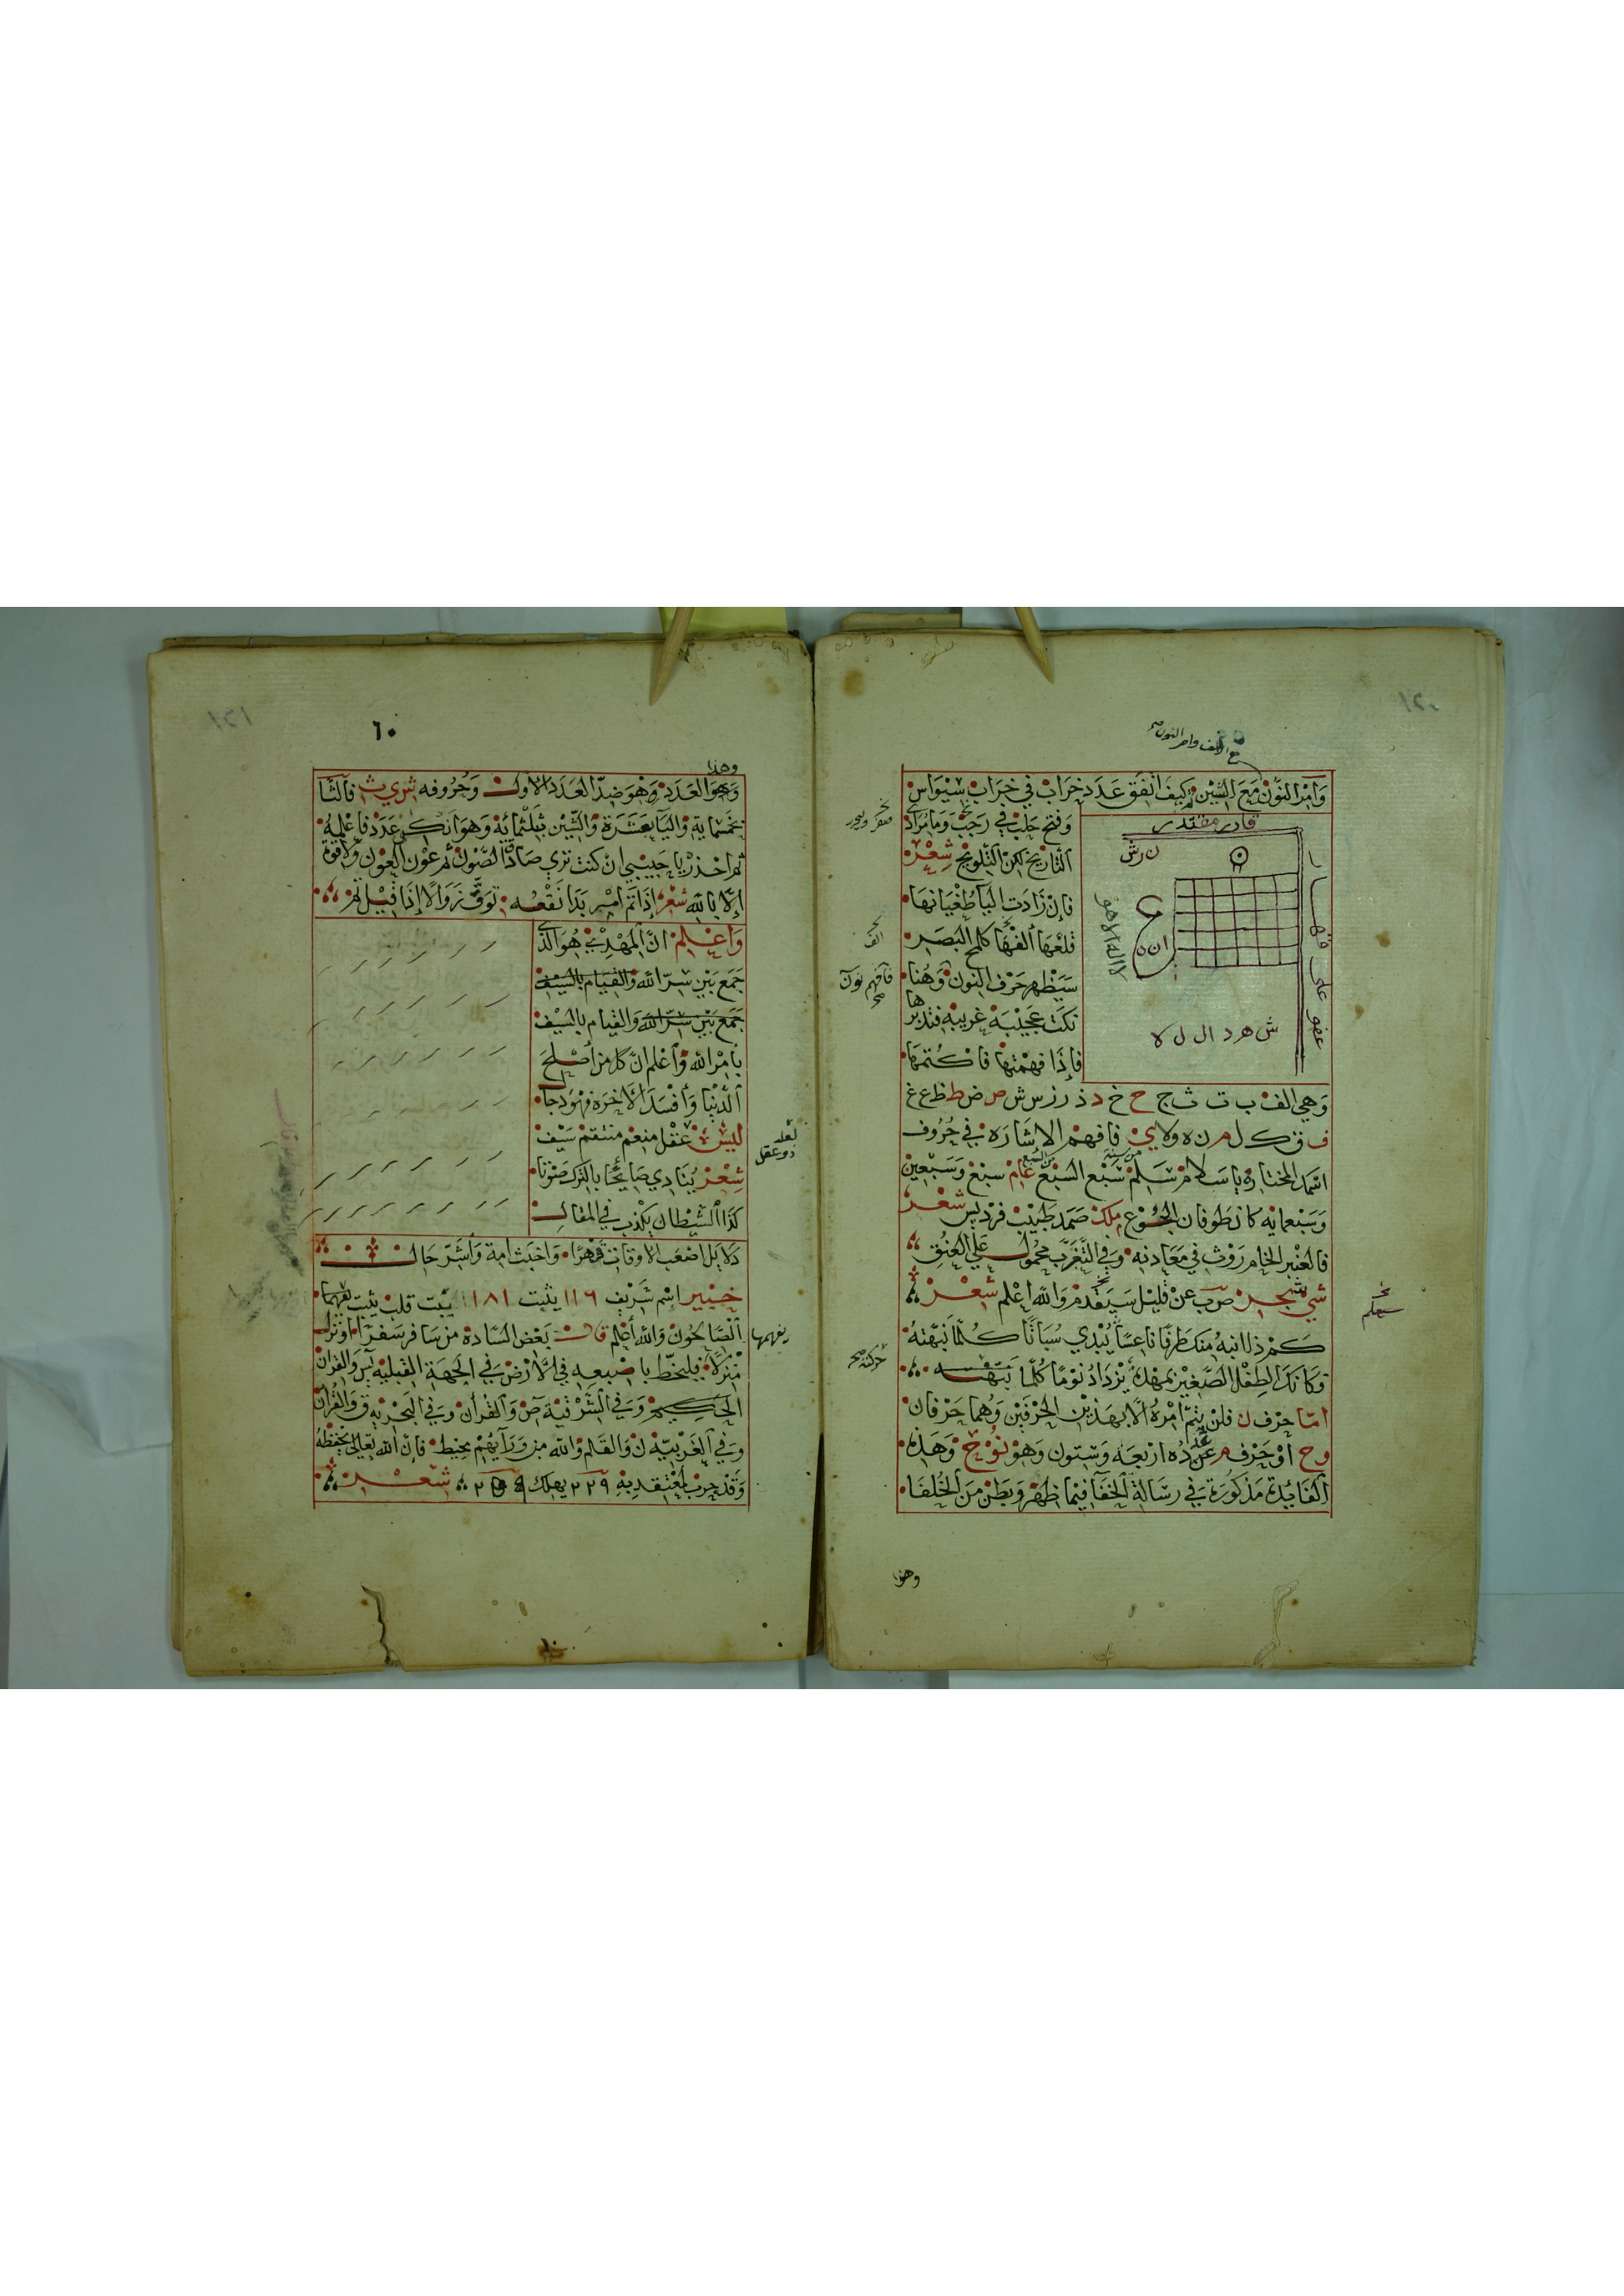 مع الالف وامر النون صح
وَامْر النّونْ مَعَ السّينْ كيفَ اتّفَق عَدَد خرَابْ في خرَاب سيْوَاس
وَفتح حَلبْ في رَجَبْ وَمَا مُرَاد
التاريخ لكن التلويح شِعْر
فاِنْ زَادَت اليَا طُغْيَانهَا
قلعَهَا الفهَا كلمح البَصَر
سَيَظْهر حَرْف النون وَهُنا
نكَت عَجيْبَه غريبه فتدبرها
فاِذَا فهمْتهَا فاكْتمهَا
قادر مقتدر
ن رش
قهار
ان ن
عفو على
ش هـ د ال ل لا
وَهي الف ب ت ث ج ح خ د ذ ر ز س ش ص ض ط ظ ع غ
ف ق ك ل م ن ه و لا ي فافهم الاشَارَه في حُرُوف
اسمَه المختاره يا سَلام سَلمْ سَبْع السَبْعْ عَام سَبعْ وَسَبْعين
من سنة
من السبع
وَسَبْعمايه كانَ طوفان الجُوع مَلِك صَمَد طبيْب فرْد شعْر
فالعنْبر الخام رَوْث في مَعَادنه وَفي التّغرّب محمُول عَلى العُنُق
عنْ قليْل سَيَقدم وَالله اعْلم شعْر
نخ سيعلم
كَمْ ذا انبه مُنكَ طرْفًا ناعسًا يُبْدي سُبَاتًا كُلّما نبّهْتهُ
فكاَنكَ الطِفْل الصَّغيْر بمهْدِه يَزْدَادُ نَوْمًا كُلّمَا
حركته صح
امّا حرْف ن فلنْ يتمّ امْرُهُ الّا بهَذيْن الحرْفيْن وَهُمَا حَرْفان
وح اوْ حَرْف م عَدَدُه ارْبعَه وَسّتون وَهوْ نُوْح وَهَذه
الفَايُدة مَذكورَة في رسَالة الخفَا فيمَا ظهَرَ وَبَطنْ منَ الخُلفَا
نخ الف
فافهم نون صح
وهذا
٦٠
وهذا
وَهوَ العَدَد وَهْوَ ضدّ العَدَد الاوّل وَحُرُوفه ش ر ي ث فالثَا
بخمْسمايةٍ وَاليَا بعَشَرَة وَالشيْن بثلثمَائة وَهوَ انكى عَدَد فاعْلمه
ثم احْذرْ يا حَبيْبي انْ كنت ترى صَادَ الصَّوْن ثم عوْن العَوْن وَلا قوة
الّا بالله شعْر اِذا تَمّ امْر بَدَا نقْصُه توَقّ زَوَالًا اِذا قيْل تم
وَاعْلم انّ المَهْديّ هُوَ الذّي
جَمَع بَيْن سرّ الله وَالقيَام بالسَيْف
جَمَع بَيْن سرّ الله وَالقيَام بالسَيْف
بامْر الله وَاعْلم انّ كل من اَصْلَحَ
الدّنْيَا وَاَفْسَدَ الاخرَة فهْوَ دجّال
ليْسَ عَقْل منعم منتقم سَيْف
لعله ذو عقل
شِعْر يُنَادي صَايحًا بالترك صَوْتًا
كَذَا الشيْطان يكْذب في المقال
دَلايل اصْعَب الاوقات قهْرًا وَاخبَث امّة وَاَشرّ حَال
خبير اسْم شَريف ١١٦ يثبت ١١٨١ يبْت قلب يثبت يفهمهَا
يفهمها
الصَّالحُون وَالله اَعْلم قال بَعْض السّادة من سَافر سَفرًا اوْ نزل
منْزلًا فليخطّ باصْبعه في الْارْض في الجهَة القبليه يس وَالقرانْ
الحكيم وَفي الشَرْقيّة ص وَالقرْأن وَفي البَحْريه ق وَالقُرْآن
وَفي الغَرْبيّة ن وَالقَلم وَالله من وَرَآئهمْ محيط فاِنّ الله تعَالى يحْفظهُ
وَقَدْ جرّب لمعْتقديْه ٢٢٩ يهلك شعْر